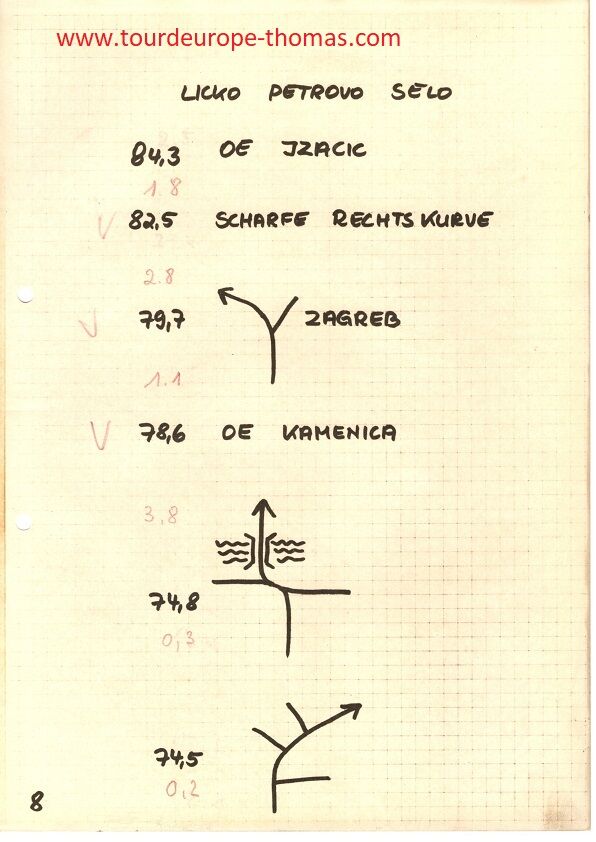 www.tourdeurope-thomas.com
LICKO PETROVO SELO
84,3 OE IZACIC
1.8
V 82,5 SCHARFE RECHTSKURVE
2.8
V 79,7 ZAGREB
1.1
V 78,6 OE KAMENICA
3,8
74,8
0,3
74,5
0,2
8